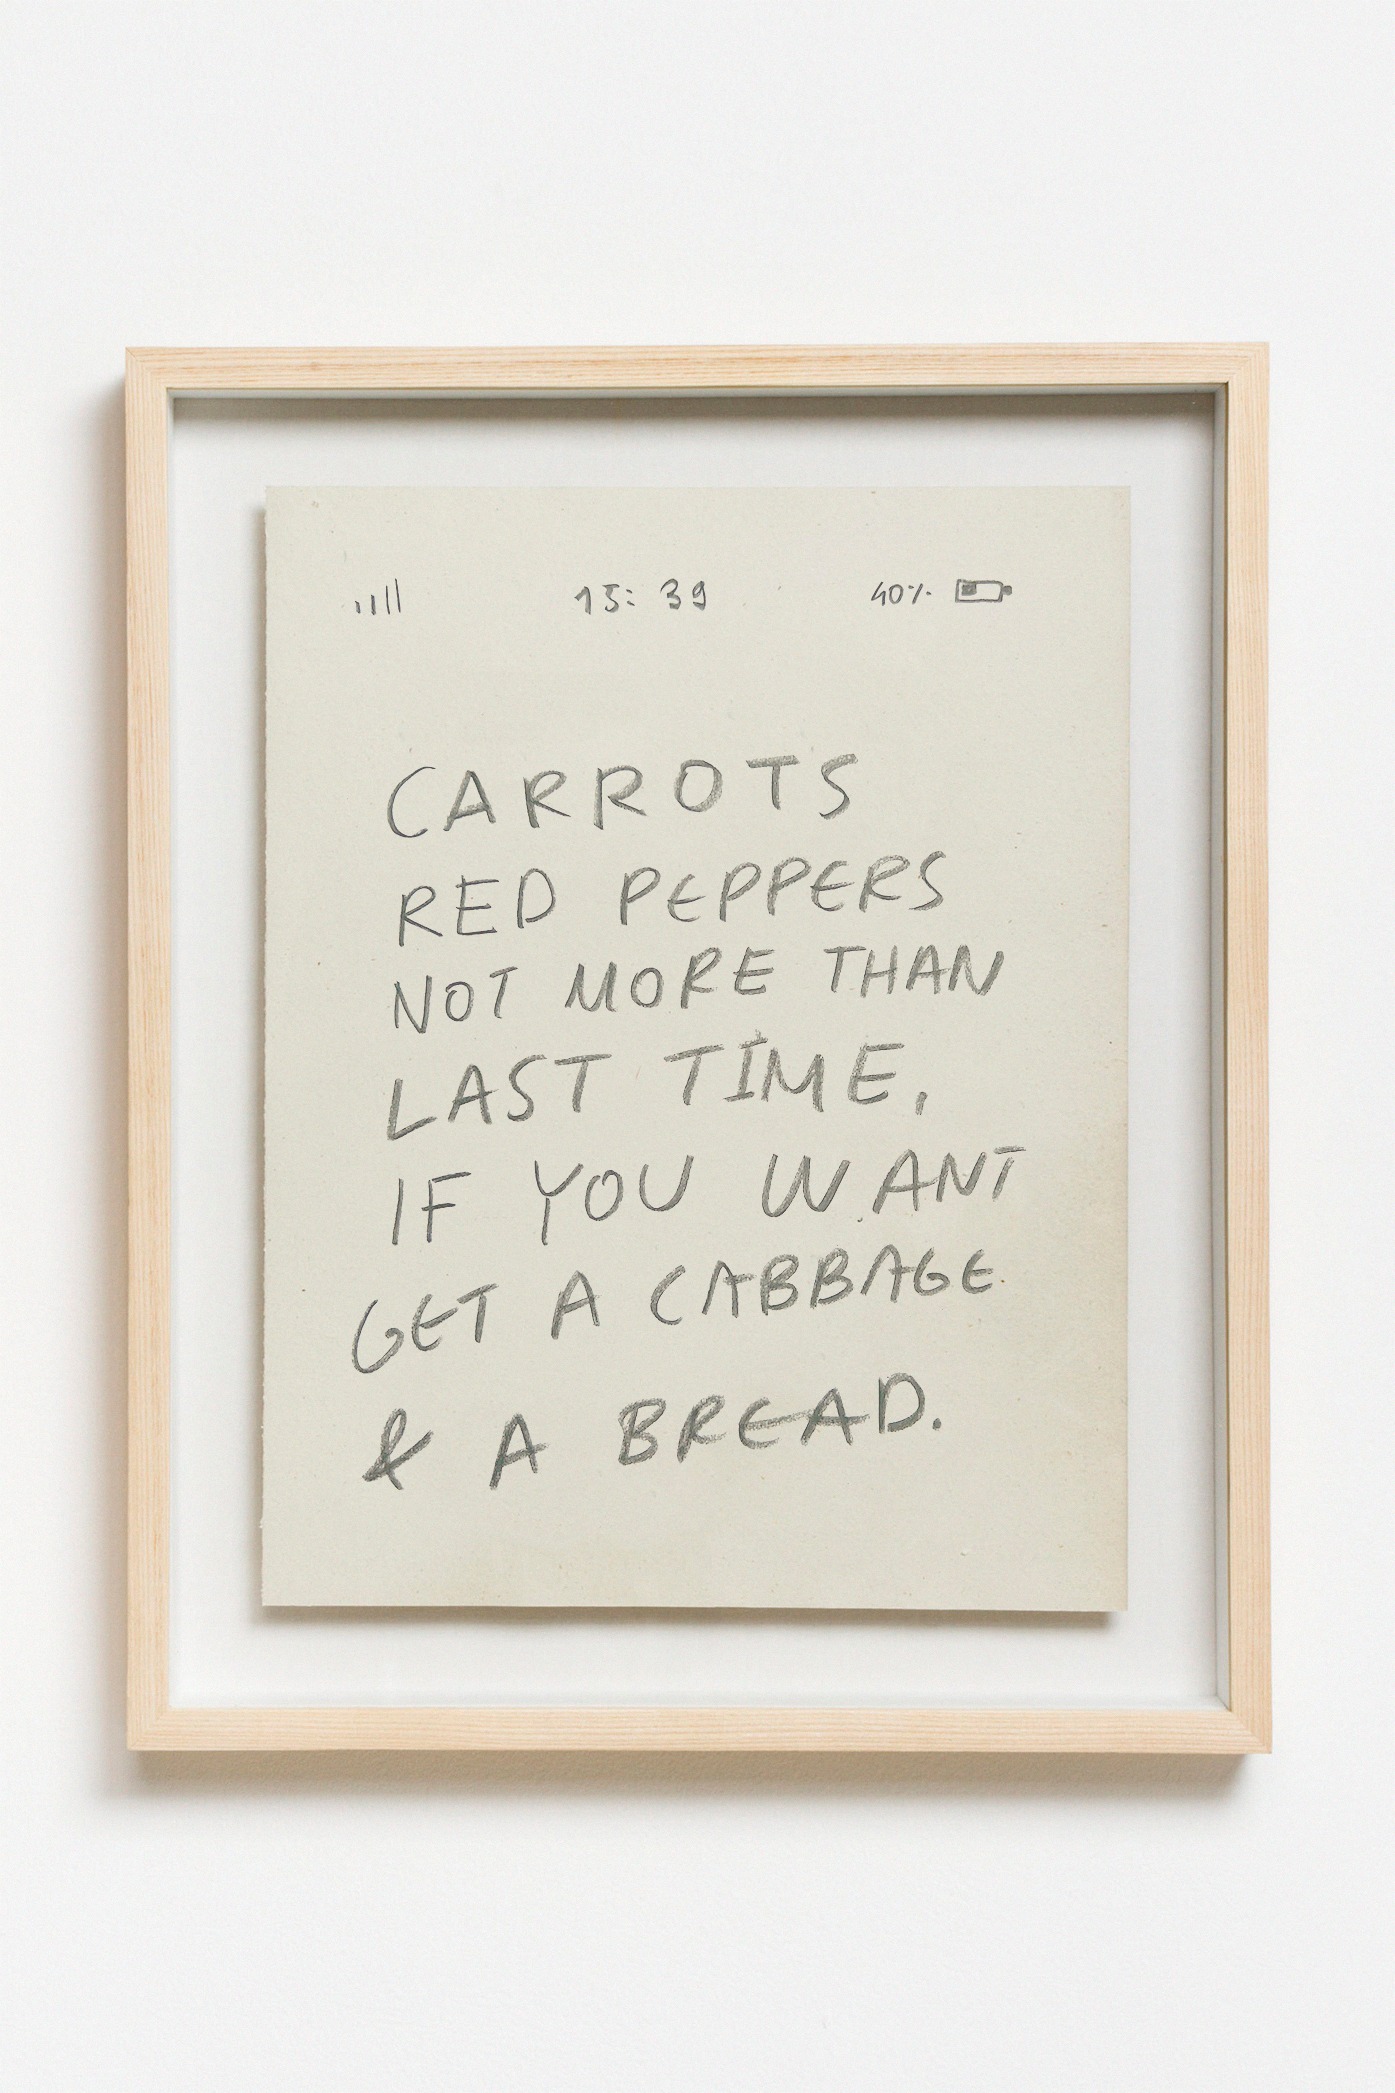 15:39 40%
CARROTS
RED PEPPERS
NOT MORE THAN
LAST TIME,
IF YOU WANT
GET A CABBAGE
& A BREAD.